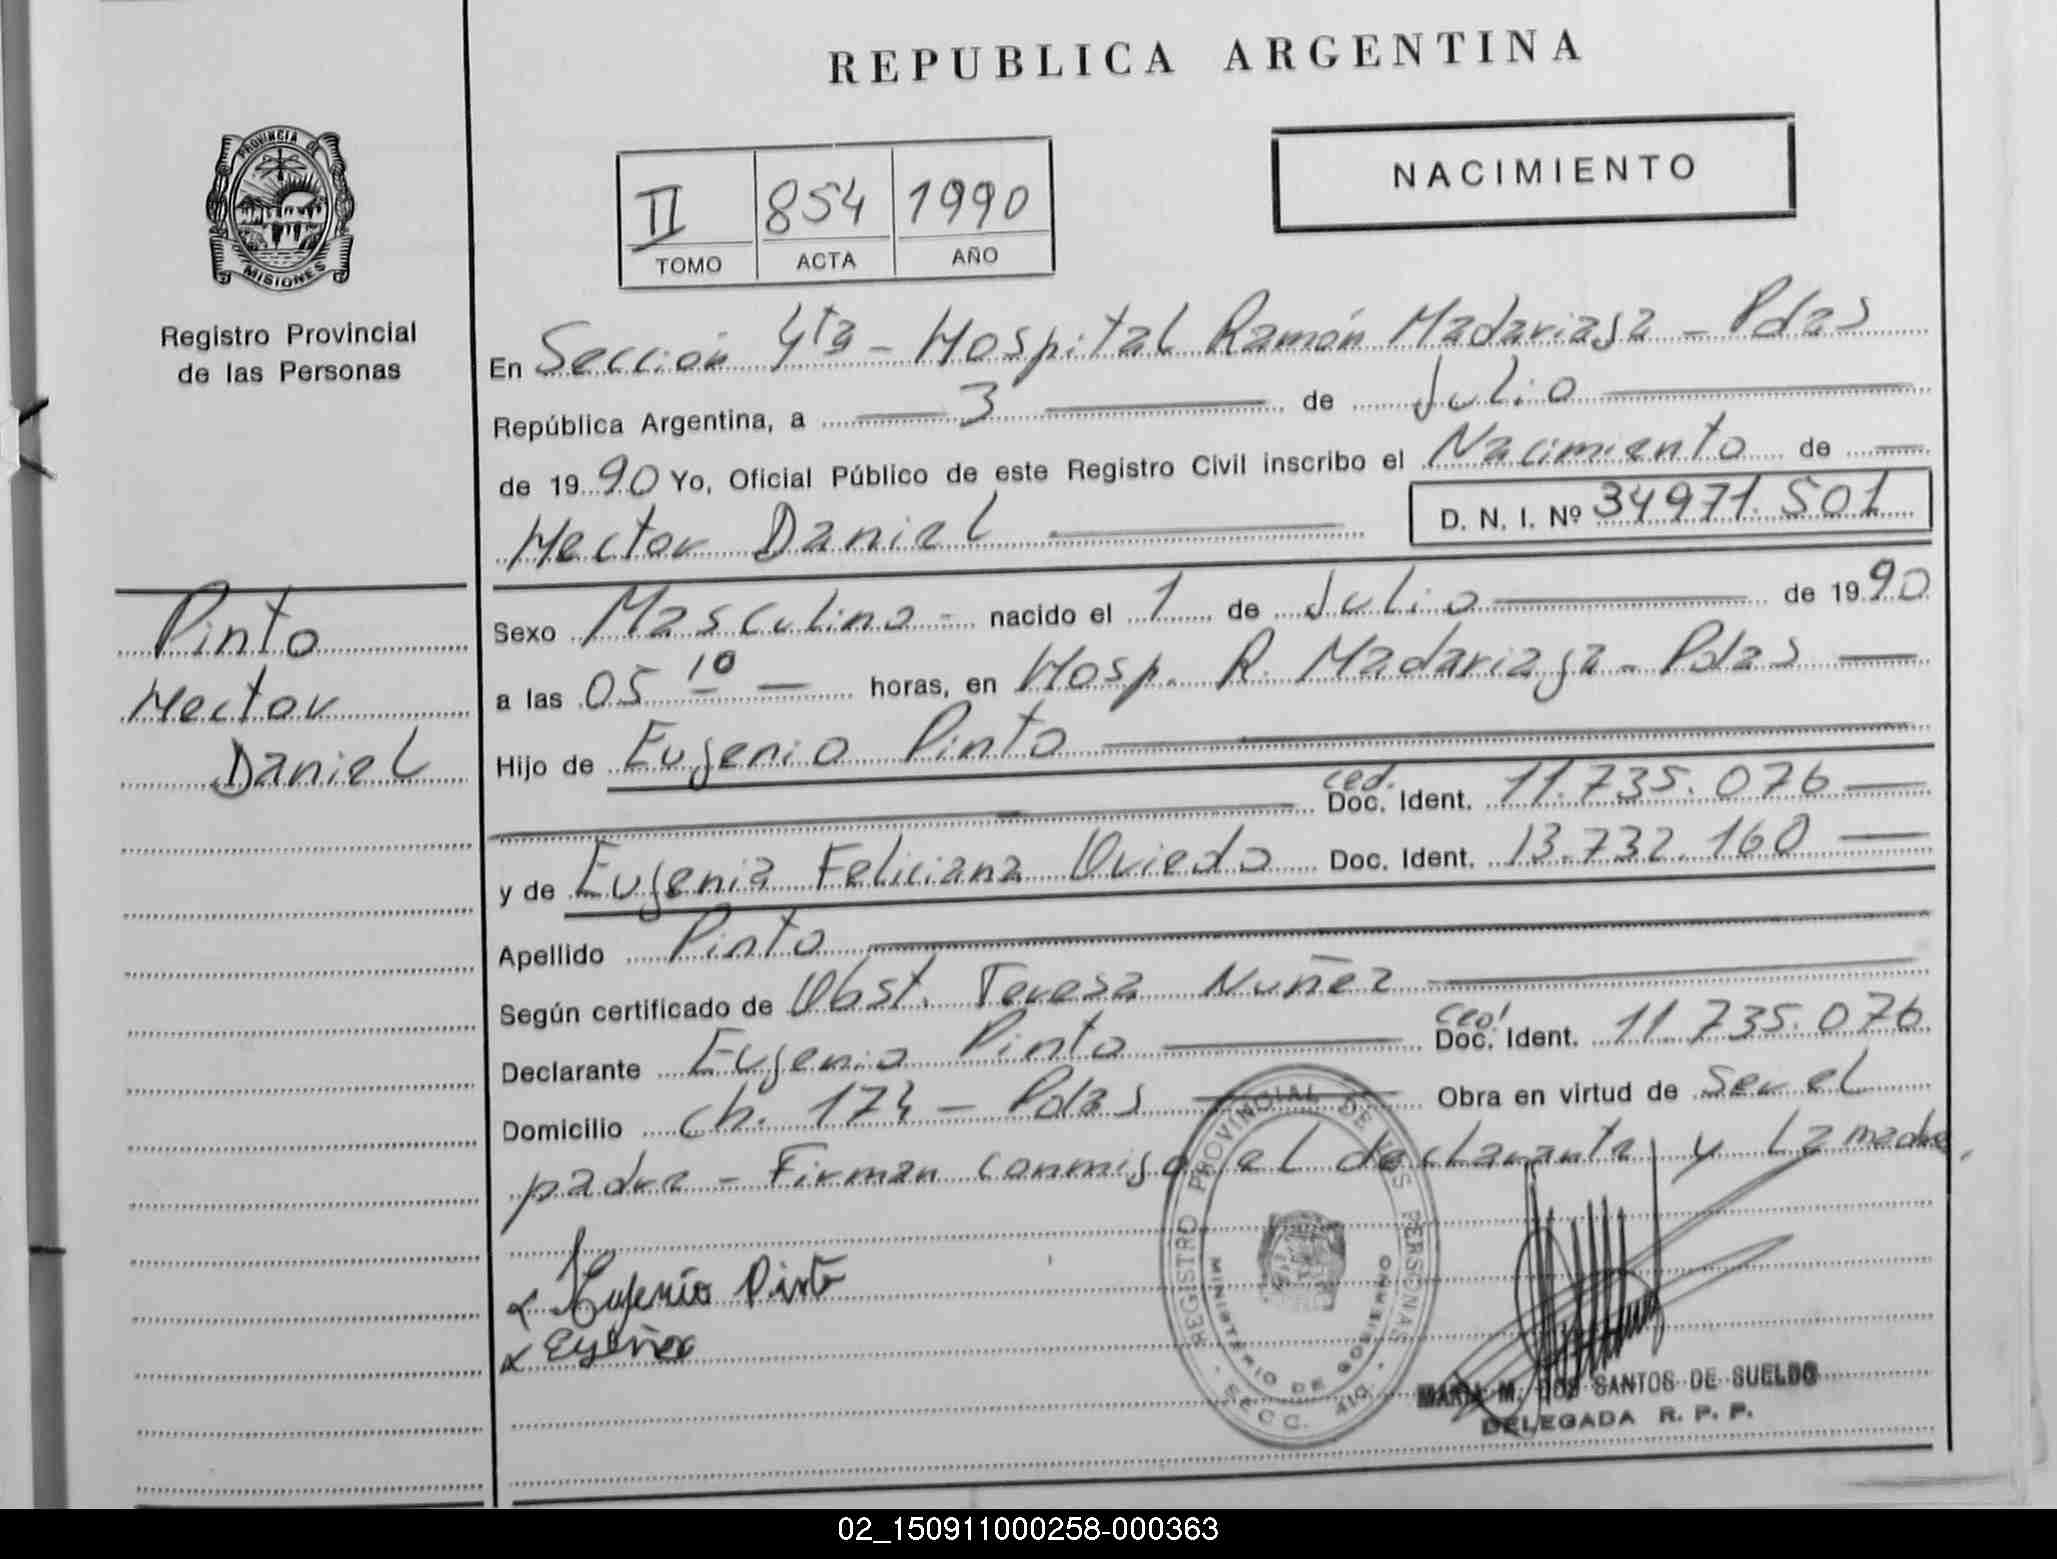 REPUBLICA ARGENTINA
PROVINCIA DE
MISIONES
Registro Provincial
de las Personas
II 854 1990
TOMO ACTA AÑO
NACIMIENTO
En Sección 4ta - Hospital Ramón Madariaga - Pdas
República Argentina, a 3 de Julio
de 1990 Yo, Oficial Público de este Registro Civil inscribo el Nacimiento de
Hector Daniel D. N. I. Nº 34971.501
Pinto
Hector
Daniel
Sexo Masculino - nacido el 1 de Julio de 1990
a las 05 10 horas, en Hosp. R. Madariaga - Pdas
Hijo de Eugenio Pinto
ced. Doc. Ident. 11.735.076
y de Eugenia Feliciana Oviedo Doc. Ident. 13.732.160
Apellido Pinto
Según certificado de Obst. Teresa Nuñez
Declarante Eugenio Pinto ced. Doc. Ident. 11.735.076
Domicilio Ch. 174 - Pdas Obra en virtud de Ser el
padre - Firman conmigo el declarante y la madre.
Eugenio Pinto
REGISTRO PROVINCIAL DE LAS PERSONAS
MINISTERIO DE GOBIERNO
SECC. 4ta.
MARIA M. DOS SANTOS DE SUELDO
DELEGADA R. P. P.
02_150911000258-000363